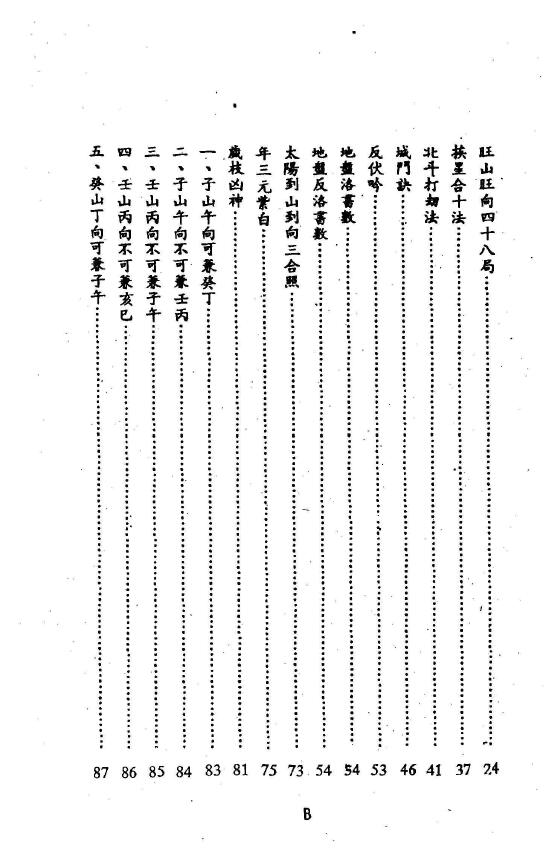 旺山旺向四十八局 24
挨星合十法 37
北斗打劫法 41
城門訣 46
反伏吟 53
地盤洛書數 54
地盤反洛書數 54
太陽到山到向三合照 73
年三元紫白 75
歲枝凶神 81
一、子山午向可兼癸丁 83
二、子山午向不可兼壬丙 84
三、壬山丙向不可兼子午 85
四、壬山丙向不可兼亥巳 86
五、癸山丁向可兼子午 87
B